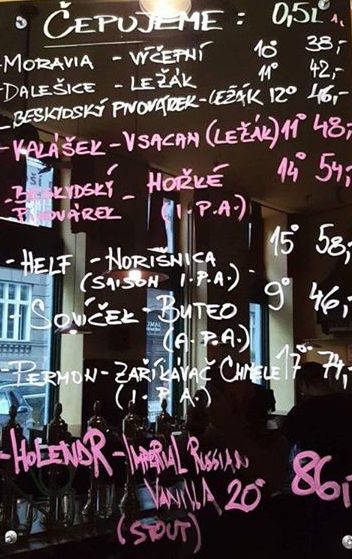 ČEPUJEME: 0,5L
-MORAVIA - VÝČEPNÍ 10° 38,-
-DALEŠICE - LEŽÁK 11° 42,-
-BESKYDSKÝ PIVOVÁREK-LEŽÁK 12° 46,-
-KALÁŠEK-VSACAN (LEŽÁK) 11° 48,-
-BESKYDSKÝ - HOŘKÉ 14° 54,-
PIVOVÁREK (I.P.A.)
-HELF - NORIŠNICA 15° 58,-
(SAISON I.P.A.)
-SOVÍČEK-BUTEO 9° 46,-
(A.P.A.)
-PERMON-ZAŘÍKÁVAČ CHMELE 17° 74,-
(I.P.A.)
-HOLENDR-IMPERIAL RUSSIAN
VANILLA 20° 86,-
(STOUT)